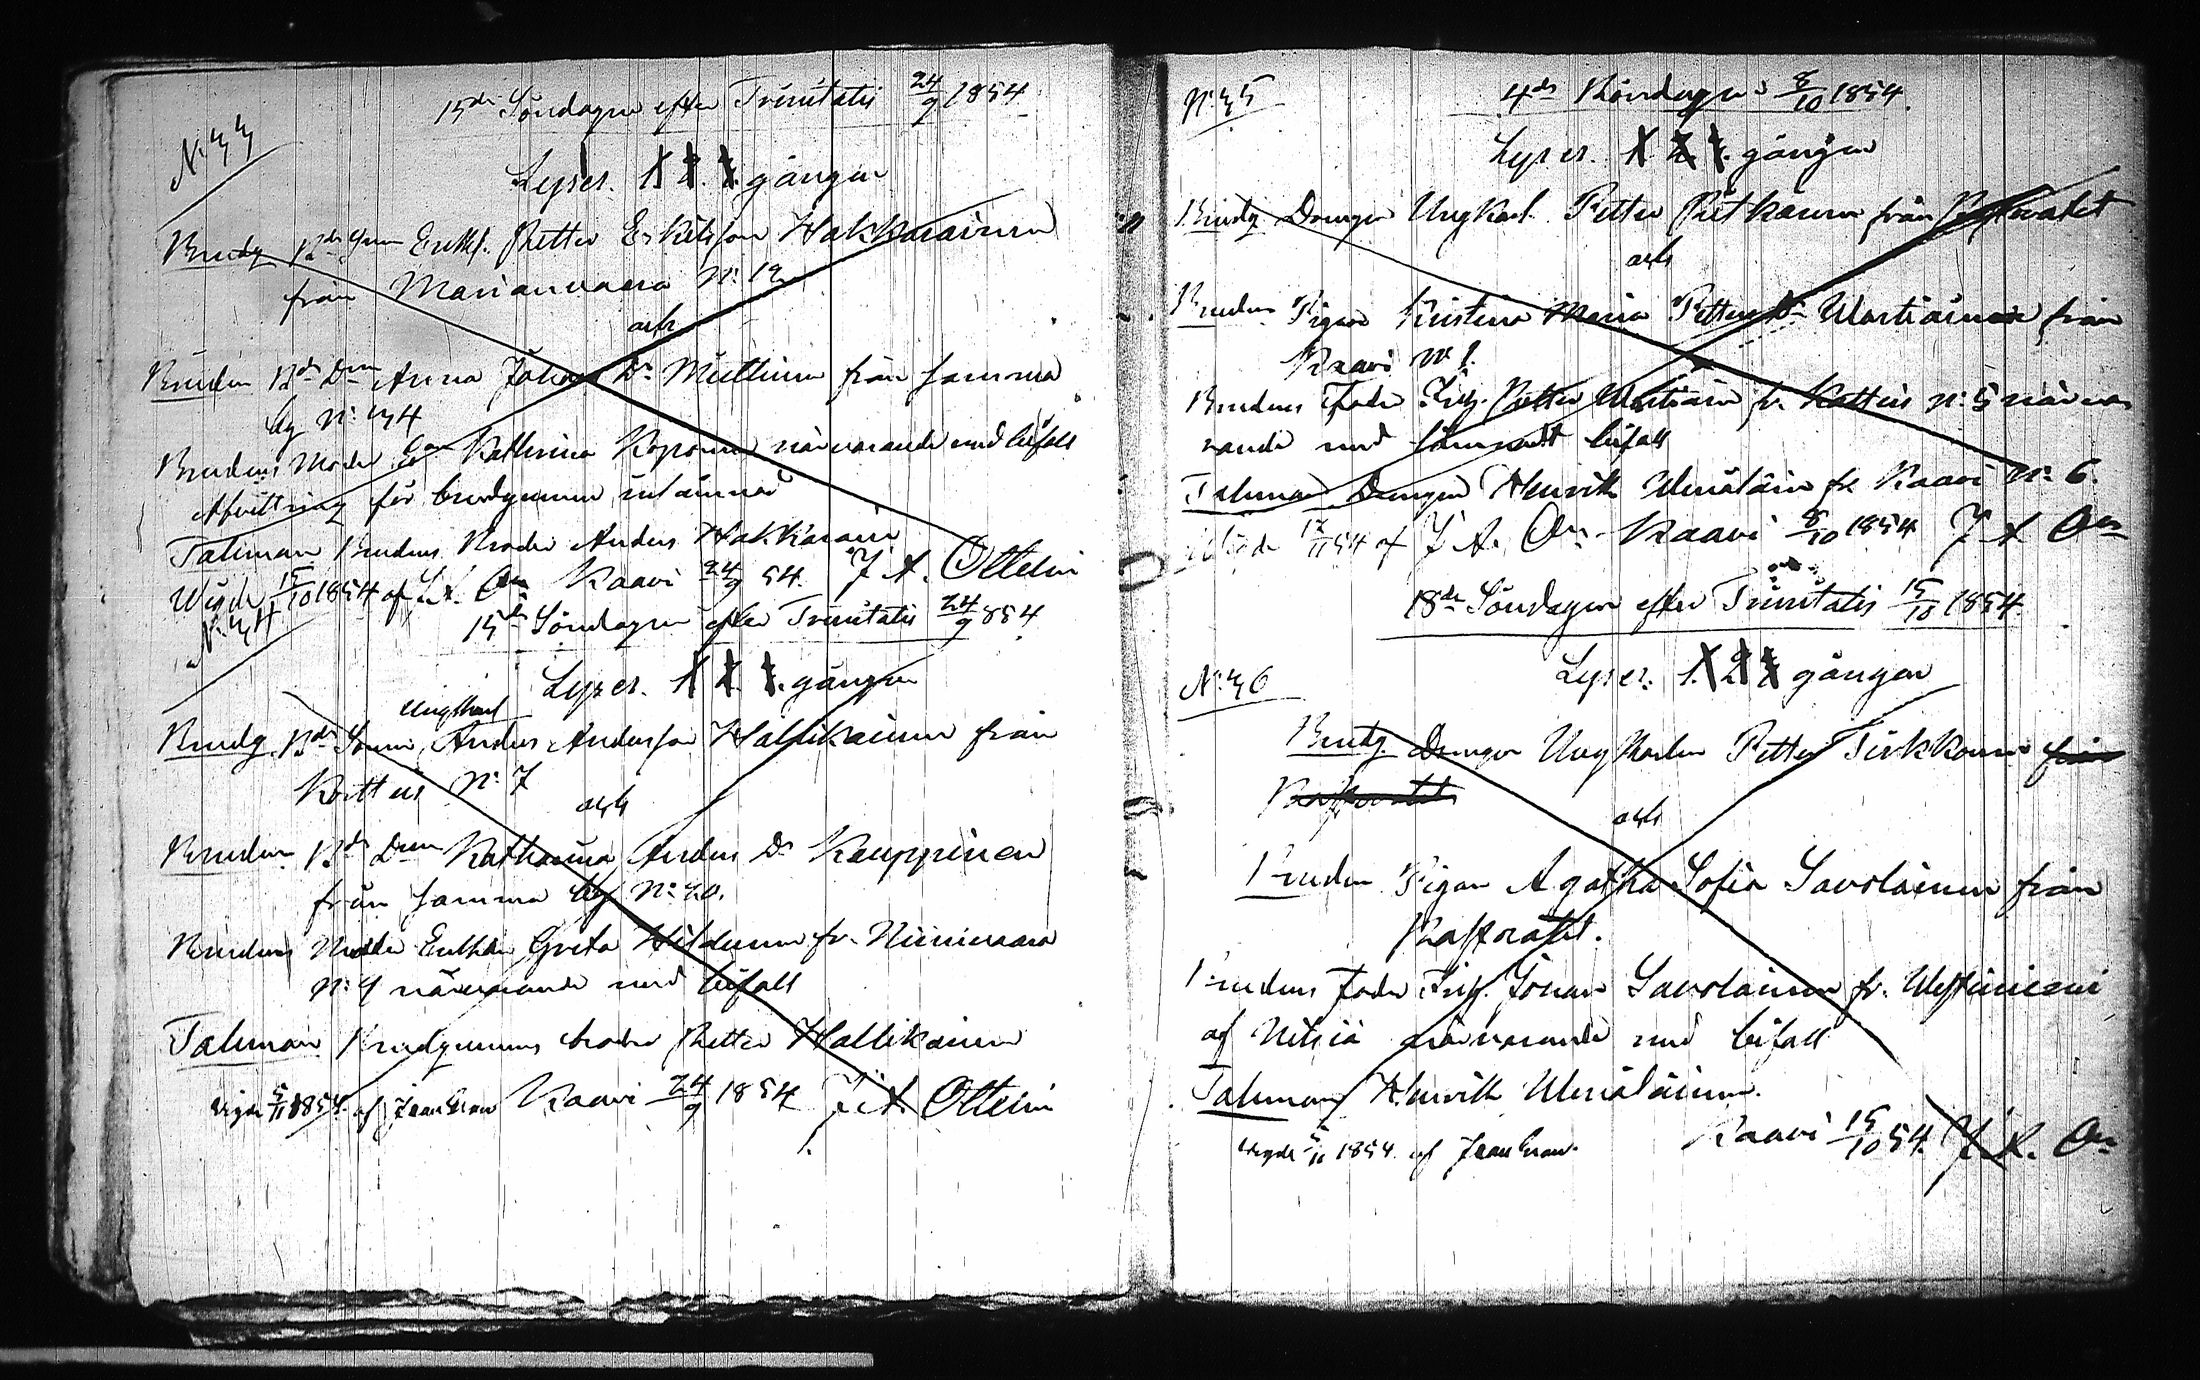 15de Söndagen efter Trinitatis 24/9 1854
N: 33
Lyses. 1. 2. 3. gången
Brudg. Bde Son Enkl. Petter Eskelsson Hakkarainen
från Marianvaara N: 12
och
Bruden Bde Dm Anna Johans Dr Miettinen från samma
by N: 34
Brudens Moder Katharina Koponen närvarande med bifall
Afvittring för brudgummen inlämnad
Talman Brudens Broder Anders Hakkarain
Wigde 15/10 1854 af J. A. On Kaavi 24/9 54. J. A. Ottelin
N: 34
15de Söndagen efter Trinitatis 24/9 854
Lyses. 1. 2. 3. gången
Ungkarl
Brudg. Bde Sonen, Anders Andersson Hallikainen från
Kortteis N: 7
och
Bruden Bde Dmn Katharina Anders Dr Kauppinen
från samma by N: 20.
Brudens Moder Enkan Greta fr. Niinivaara
N: 9 närvarande med bifall
Talman Brudgummens broder Petter Hallikainen
vigde 5/11 1854. af Kaavi 24/9 1854 J. A. Ottelin
N: 35
4de Böndagen 8/10 1854.
Lyses. 1. 2. 3. gången
Brudg. Drengen Ungkarl. Petter Pitkänen från
och
Bruden Pigan Kristina Maria Petters Dr Wartiainen från
Kaavi N: 1.
Brudens Fader Petter Wartiain fr. Kortteis N: 5 närva-
rande med lämnadt bifall
Talman Drengen Henrik fr. Kaavi N: 6.
12/11 54 af J. A. On. Kaavi 8/10 1854 J. A. On
18de Söndagen efter Trinitatis 15/10 1854.
N: 36
Lyses. 1. 2. 3. gången
Brudg. Drengen Ungkarlen Petter Tirkkonen från
och
Bruden Pigan Agatha Sofia Savolainen från
Brudens Fader Johan Savolainen fr.
af Nilsiä närvarande med bifall
Talman Henrik
Kaavi 15/10 54. J. A. On
vigde 5/11 1854. af